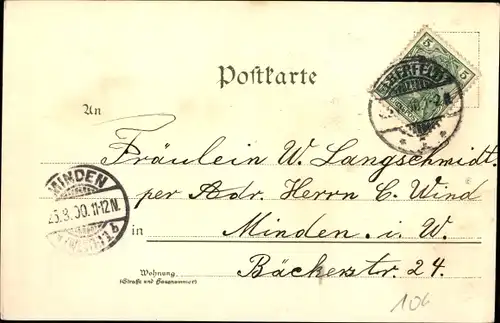 Postkarte
5 5
ELBERFELD
An
Fräulein W. Langschmidt.
per Adr. Herrn C. Wind
MINDEN
25.8.00.11-12N.
in Minden i. W.
Wohnung
(Straße und Hausnummer)
Bäckerstr. 24.
106